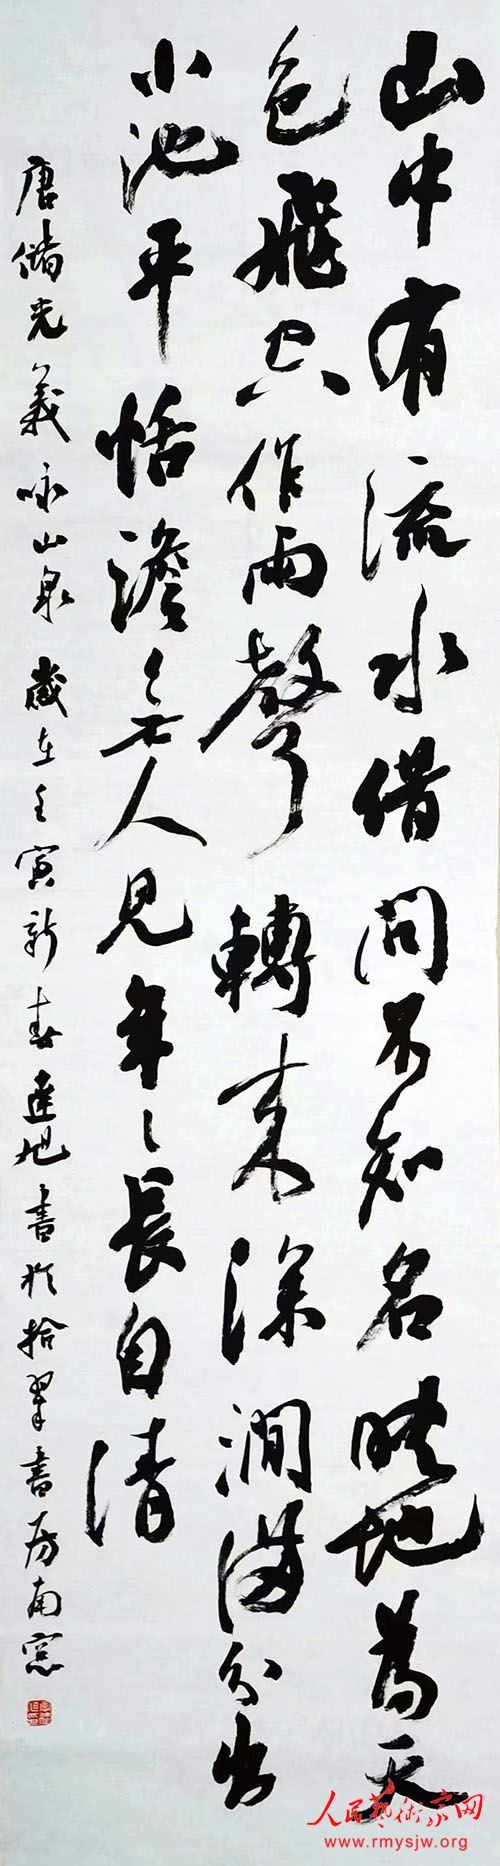 山中有流水借问不知名映地為天
色飛空作雨聲轉来深澗满分出
小池平恬澹無人見年々長自清
唐儲光羲咏山泉歲在壬寅新春達旭書於拾翠書房南窓
人民藝術家网
www.rmysjw.org